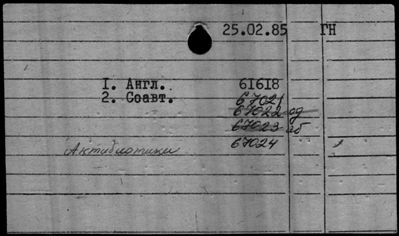 25.02.85 ГН
1. Англ. 61618
2. Соавт. 67021
67022 од
67023 аб
Актибиотики 67024